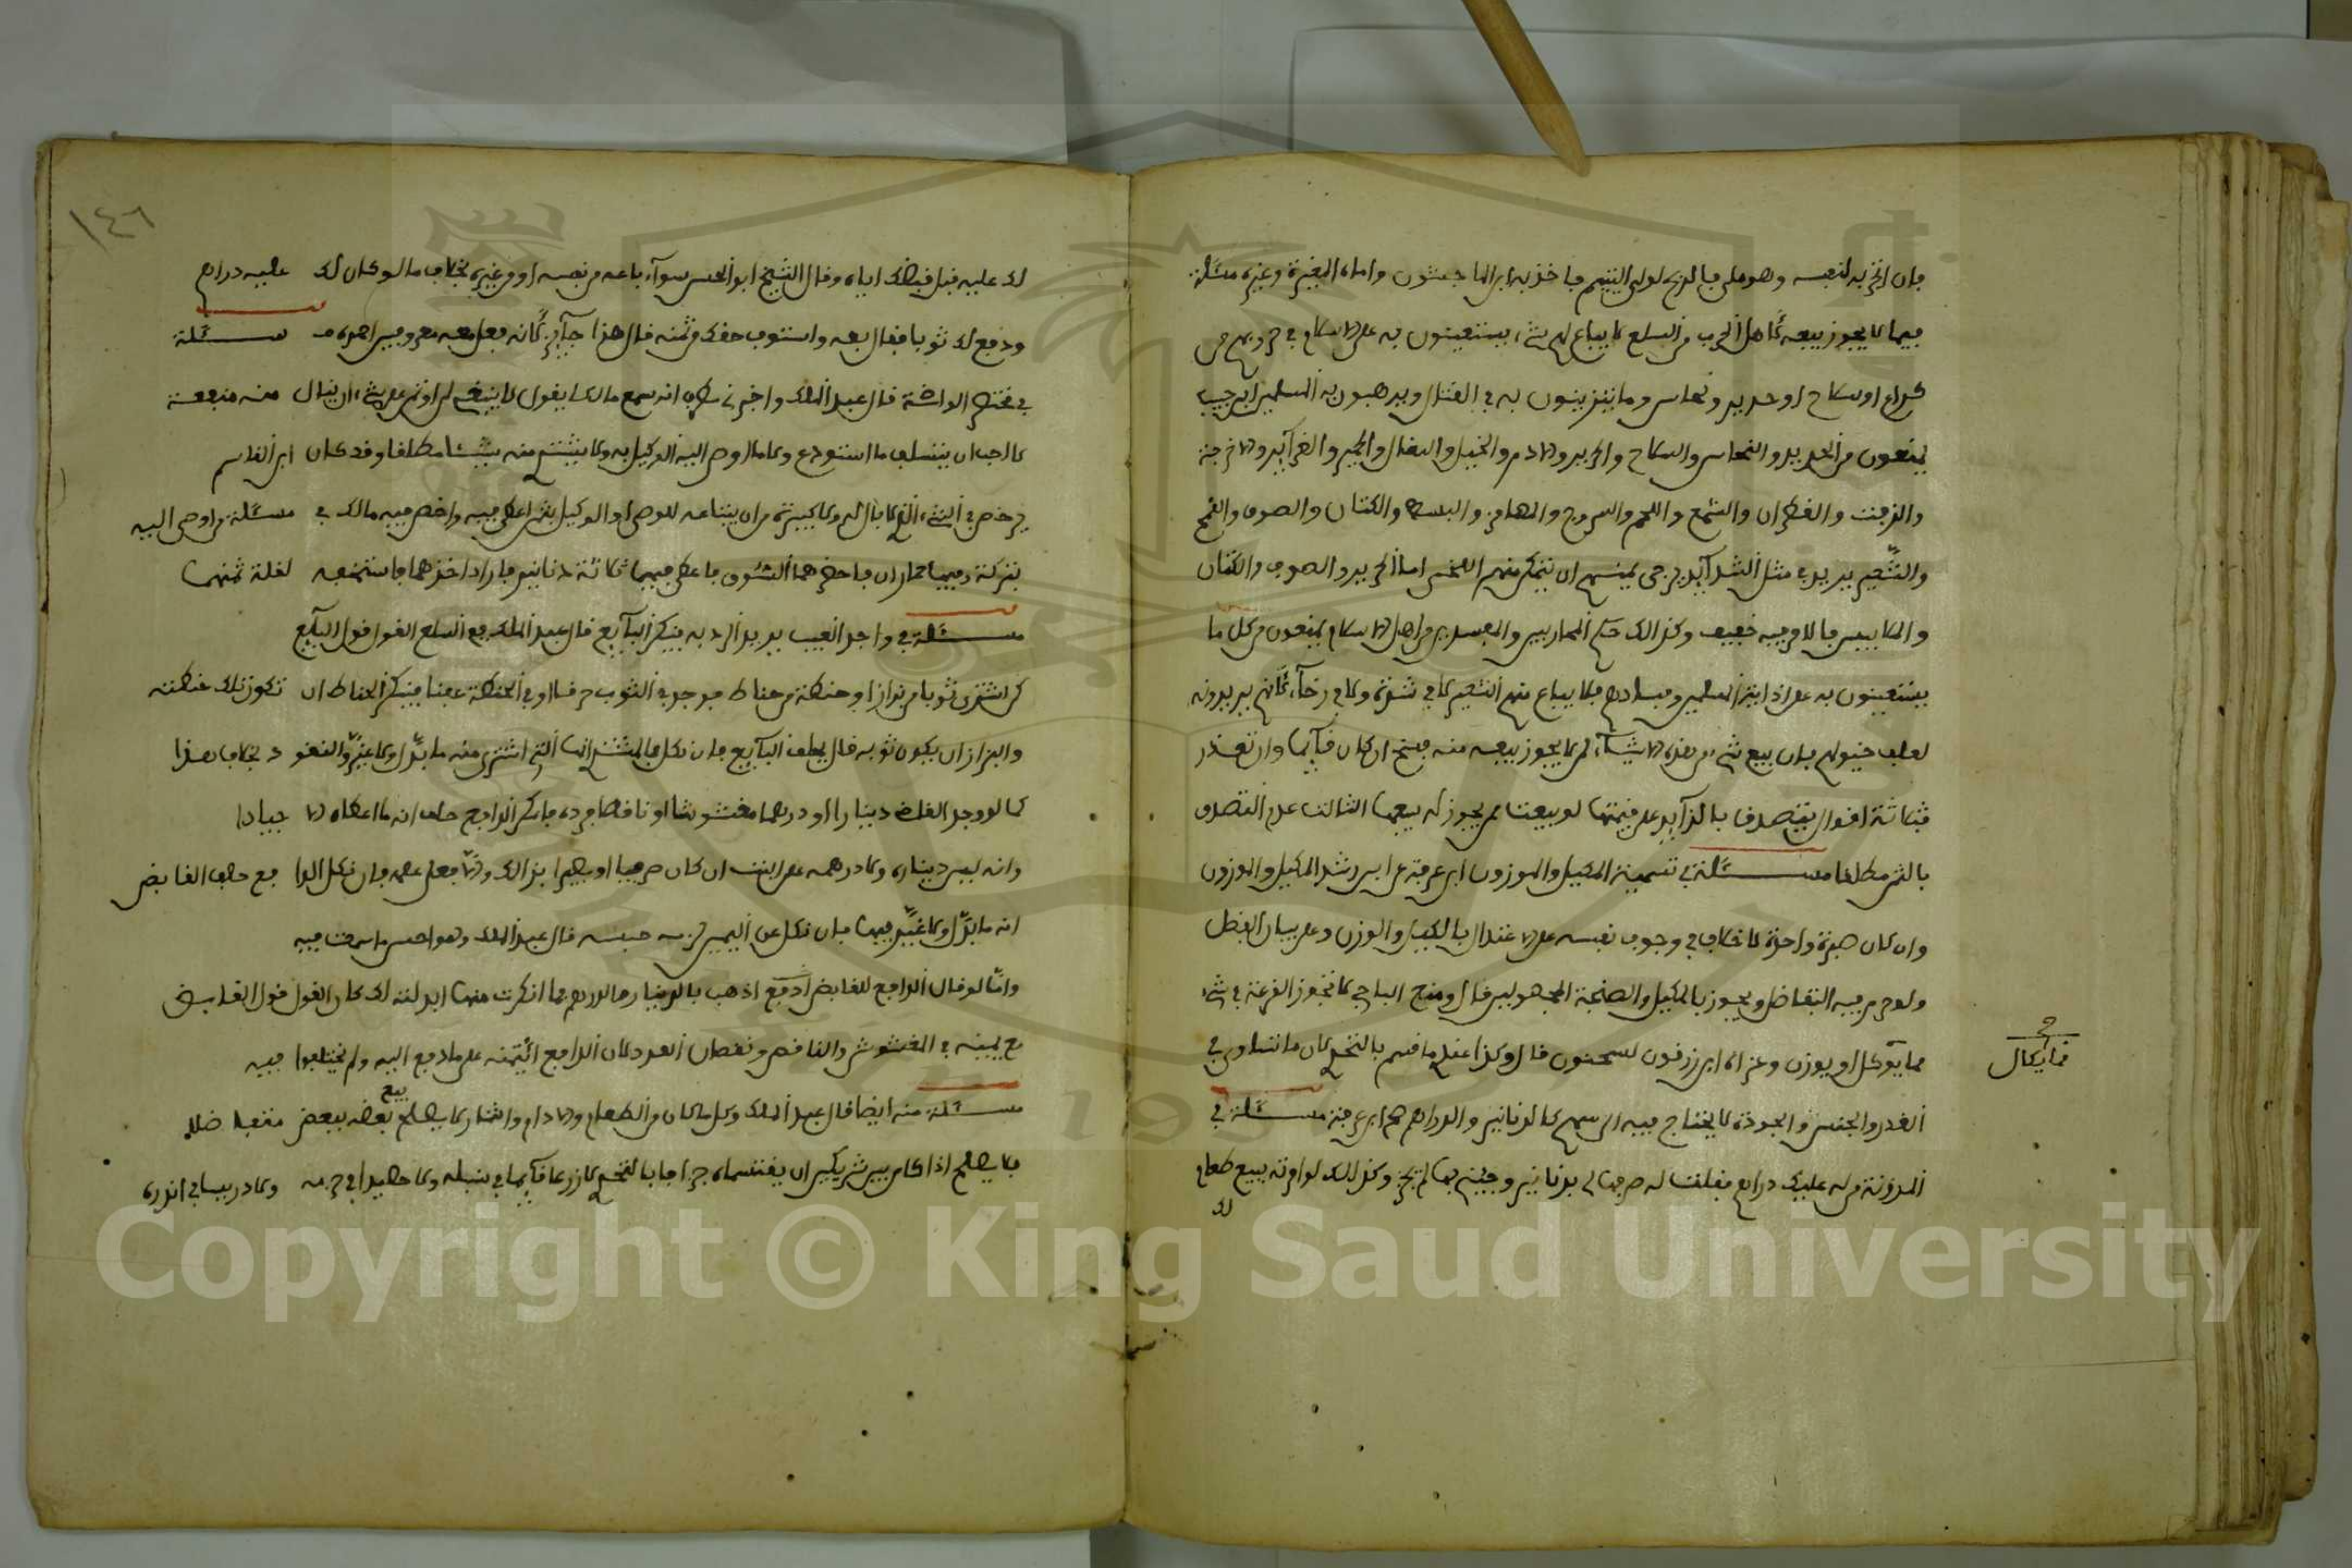 فإن اتجر به لنفسه وهو ملي فالربح لولي اليتيم فأخذ به ابن الماجشون وأباه المغيرة وغيره مسئلة
فيما لا يجوز بيعه لأهل الحرب من السلع لا يباع لهم شيء يستعينون به على الاسلام في حروبهم من
كراع او سلاح او حديد ونحاس وما يتزينون به في القتال ويرهبون به المسلمين ابن حبيب
يمنعون من الحديد والنحاس والسلاح والحرير والادم والخيل والبغال والحمير والغرآئر والاخرجة
والزفت والقطران والشمع واللجم والسروج والمهامز والبسط والكتان والصوف والقمح
والشعير يريد في مثل الشدآئد يرجى يمنيهم ان يتمكن منهم اللخمي اما الحرير والصوف والكتان
والملابيس فالامر فيه خفيف وكذالك حكم المحاربين والمفسدين من اهل الاسلام يمنعون من كل ما
يستعينون به على اذاية المسلمين وفسادهم فلا يباع منهم الشعير لا في شدة ولا في رخآء لأنهم يريدونه
لعلف خيولهم فإن بيع شيء من هذه الاشيآء لمن لا يجوز بيعه منه فسخ ان كان قآئما وان تعذر
فثلاثة اقوال يتصدق بالزآئد على قيمتها لو بيعت لمن يجوز له بيعها الثالث عدم التصدق
بالثمن مطلقا مسئلة في تسمية المكيل والموزون ابن عرفة عن ابن رشد المكيل والموزون
وان كان صبرة واحدة لا خلاف في وجوب نفسه على الاعتدال بالكيل والوزن وعلى بيان الفضل
ولو حرم فيه التفاضل ويجوز بالمكيل والصنجة المجهولين قال ومنع الباجي لا تجوز القرعة في شيء
مما يوكل او يوزن وعزاه ابن زرقون لسحنون قال وكذا عندي ما قسم بالتحري لان ما تساوى في
القدر والجنس والجودة لا يحتاج فيه الى سهم كالدنانير والدراهم هم ابن عرفة مسئلة في
المدونة من له عليك دراهم فقلت له صرفها لي بدنانير وجئني بها لم يجز وكذالك لو امرته ببيع طعام
لك
ح
مما يكال
١٤٦
لك عليه قبل قبضك اياه وقال الشيخ ابو الحسن سوآء باعه من نفسه او من غيره بخلاف ما لو كان لك عليه دراهم
ودفع لك ثوبا فقال بعه واستوف حقك من ثمنه قال هذا جآئز لأنه فعل معه معروفين مسئلة
في مختصر الواضحة قال عبد الملك واخبرني مطرف انه سمع مالكا يقول لا ينبغي لمن اوتمن على شيء ان ينال منه منفعة
لا احب ان يتسلف ما استودع ولا مال اوصي اليه الوكيل به ولا يشتري منه شيئا مطلقا وقد كان ابن القاسم
يرخص في الشيء التافه لا بال له ولا كبير ثمن ان يبتاعه للوصي او الوكيل بثمن اعطي فيه وارخص فيه مالك في مسئلة من اوصي اليه
بتركة وفيها حماران فاحضرهما السوق فاعطي فيهما ثلاثة دنانير فاراد اخذهما فاستخفه لقلة ثمنهما
مسئلة في واجد العيب يريد الرد به فينكر البآئع قال عبد الملك في السلع القول قول البآئع
كمن اشترى ثوبا من بزاز او حنطة من حناط فوجد في الثوب خرقا او في الحنطة عفنا فينكر الحناط ان تكون تلك حنطته
والبزاز ان يكون ثوبه قال يحلف البآئع فإن نكل فالمشتري انها التي اشترى منه ما بدل ولا غير والنقود بخلاف هذا
كما لو وجد القابض دينارا او درهما مغشوشا او ناقصا فرده فانكر الدافع حلف انه ما اعطاه الا جيادا
وانه ليس ديناره ولا درهمه على البت ان كان صرفيا او بصيرا بذالك والا فعلى علمه فإن نكل الدافع حلف القابض
انه ما بدل ولا غير فيها فإن نكل عن اليمين لزمه حبسه قال عبد الملك وهو احسن ما سمعت فيه
وامّا لو قال الدافع للقابض ادفع اذهب بالدينار والدرهم فما انكرت منها ابدلته لك كان القول قول القابض
مع يمينه في المغشوش والناقص ونقصان العدد لان الدافع ائتمنه على ما دفع اليه ولم يختلفوا فيه
مسئلة منه ايضا قال عبد الملك وكل ما كان من الطعام والادام والثمار لا يصلح بيع بعضه ببعض متفاضلا
فلا يصلح اذا كان بين شريكين ان يقتسماه جزافا بالتحري لا زرعا قآئما في سنبله ولا حصيدا في حزمه ولا دريسا في اندره